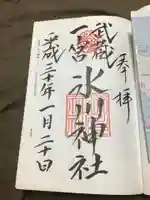 奉拝
武蔵
一宮
氷川神社
平成三十年一月二十日